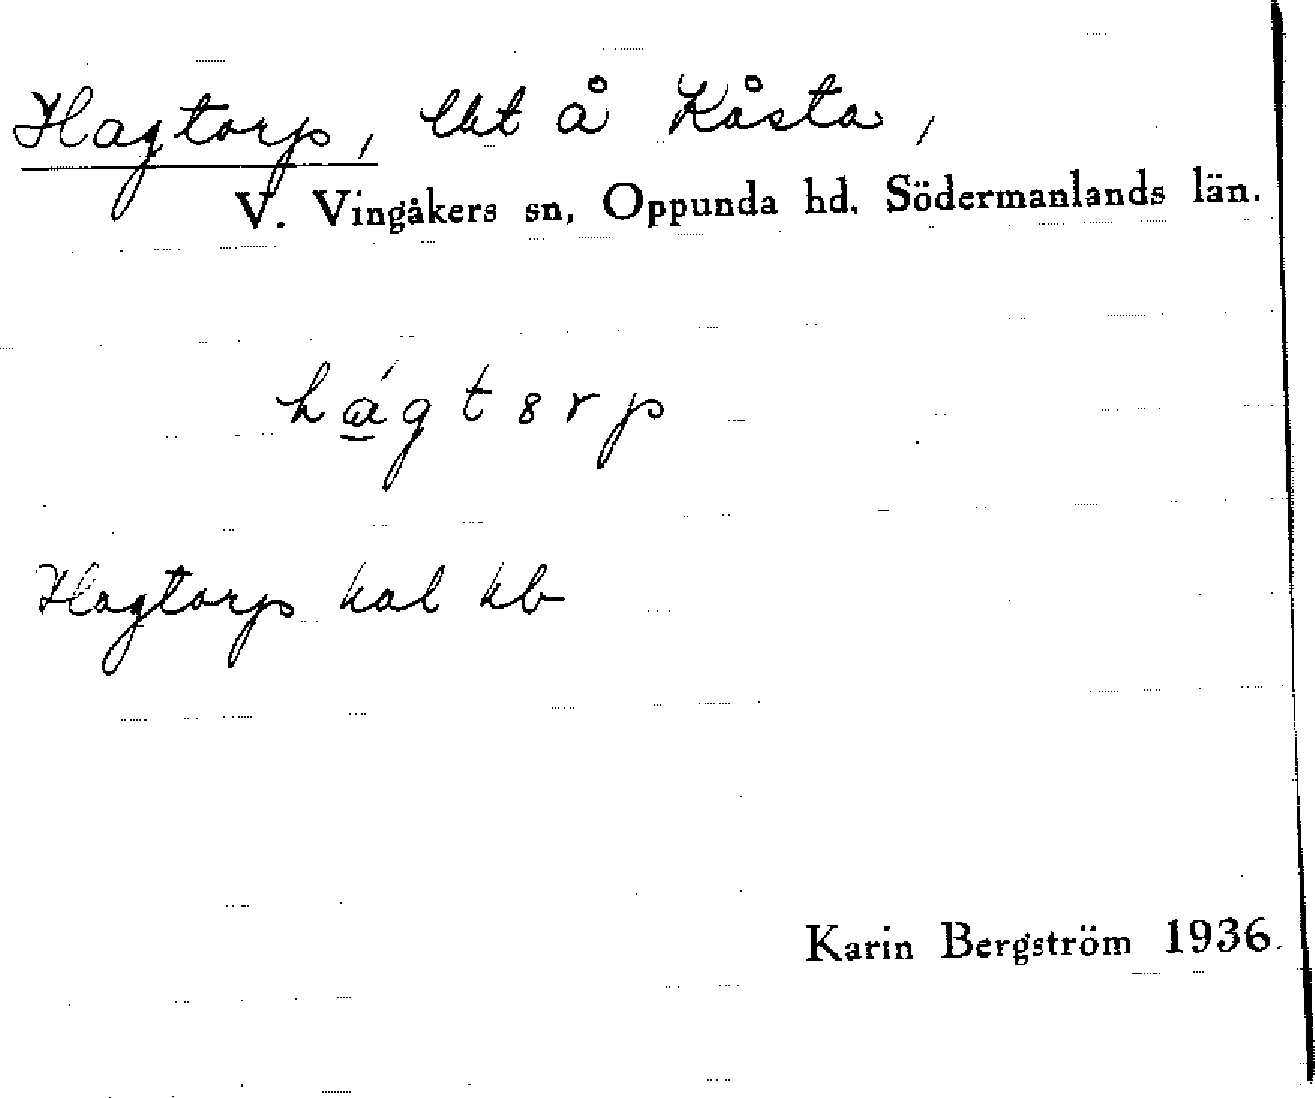 Hagtorp, lht å Kåsta,
V. Vingåkers sn, Oppunda hd. Södermanlands län.
hágtsrp
Hagtorp kal kb
Karin Bergström 1936.